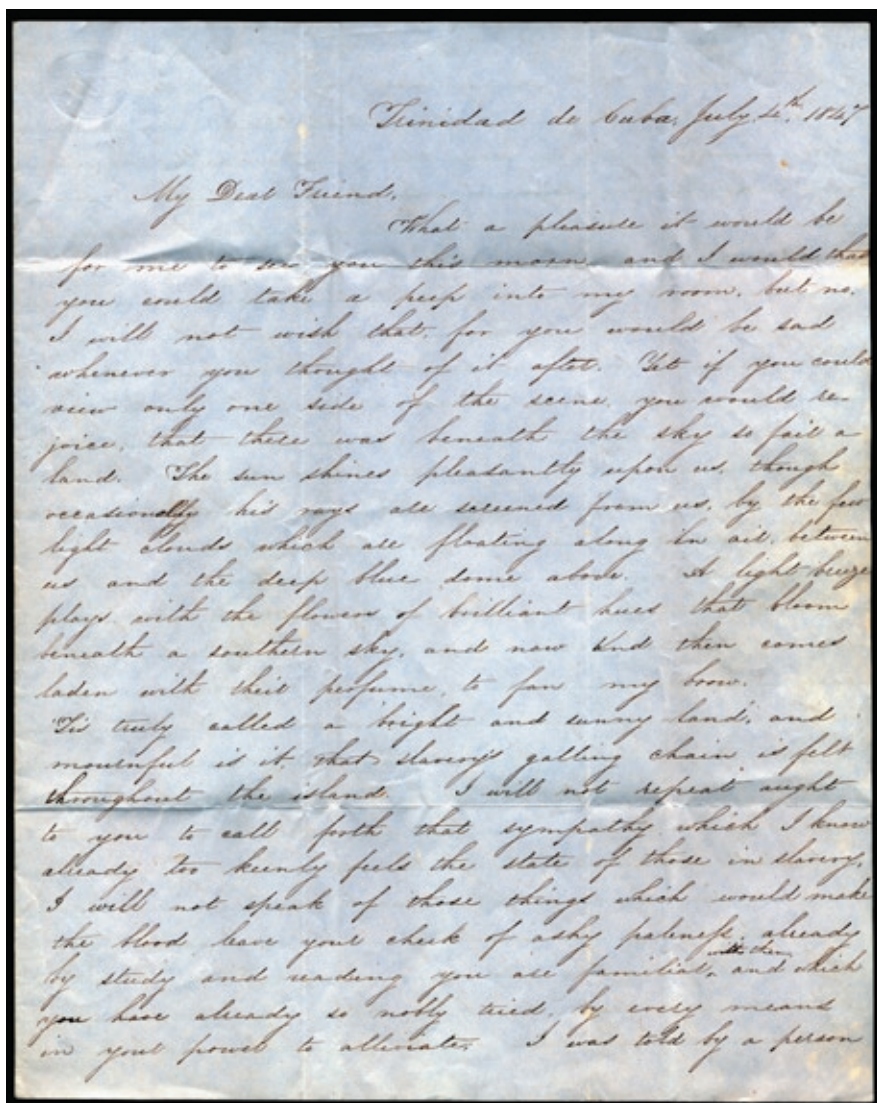 Trinidad de Cuba, July 4th, 1847
My Dear Friend,
What a pleasure it would be
for me to see you this morn, and I would that
you could take a peep into my room, but no,
I will not wish that, for you would be sad
whenever you thought of it after. Yet if you could
view only one side of the scene, you would re-
joice, that there was beneath the sky so fair a
land. The sun shines pleasantly upon us, though
occasionally his rays are screened from us, by the few
light clouds which are floating along in air, between
us and the deep blue dome above. A light breeze
plays with the flowers of brilliant hues that bloom
beneath a southern sky, and now and then comes
laden with their perfume, to fan my brow.
'Tis truly called a bright and sunny land, and
mournful is it that slavery's galling chain is felt
throughout the island. I will not repeat aught
to you to call forth that sympathy which I know
already too keenly feels the state of those in slavery,
I will not speak of those things which would make
the blood leave your cheek of ashy paleness, already
by study and reading you are familiar, with them, and which
you have already so nobly tried, by every means
in your power to alleviate. I was told by a person